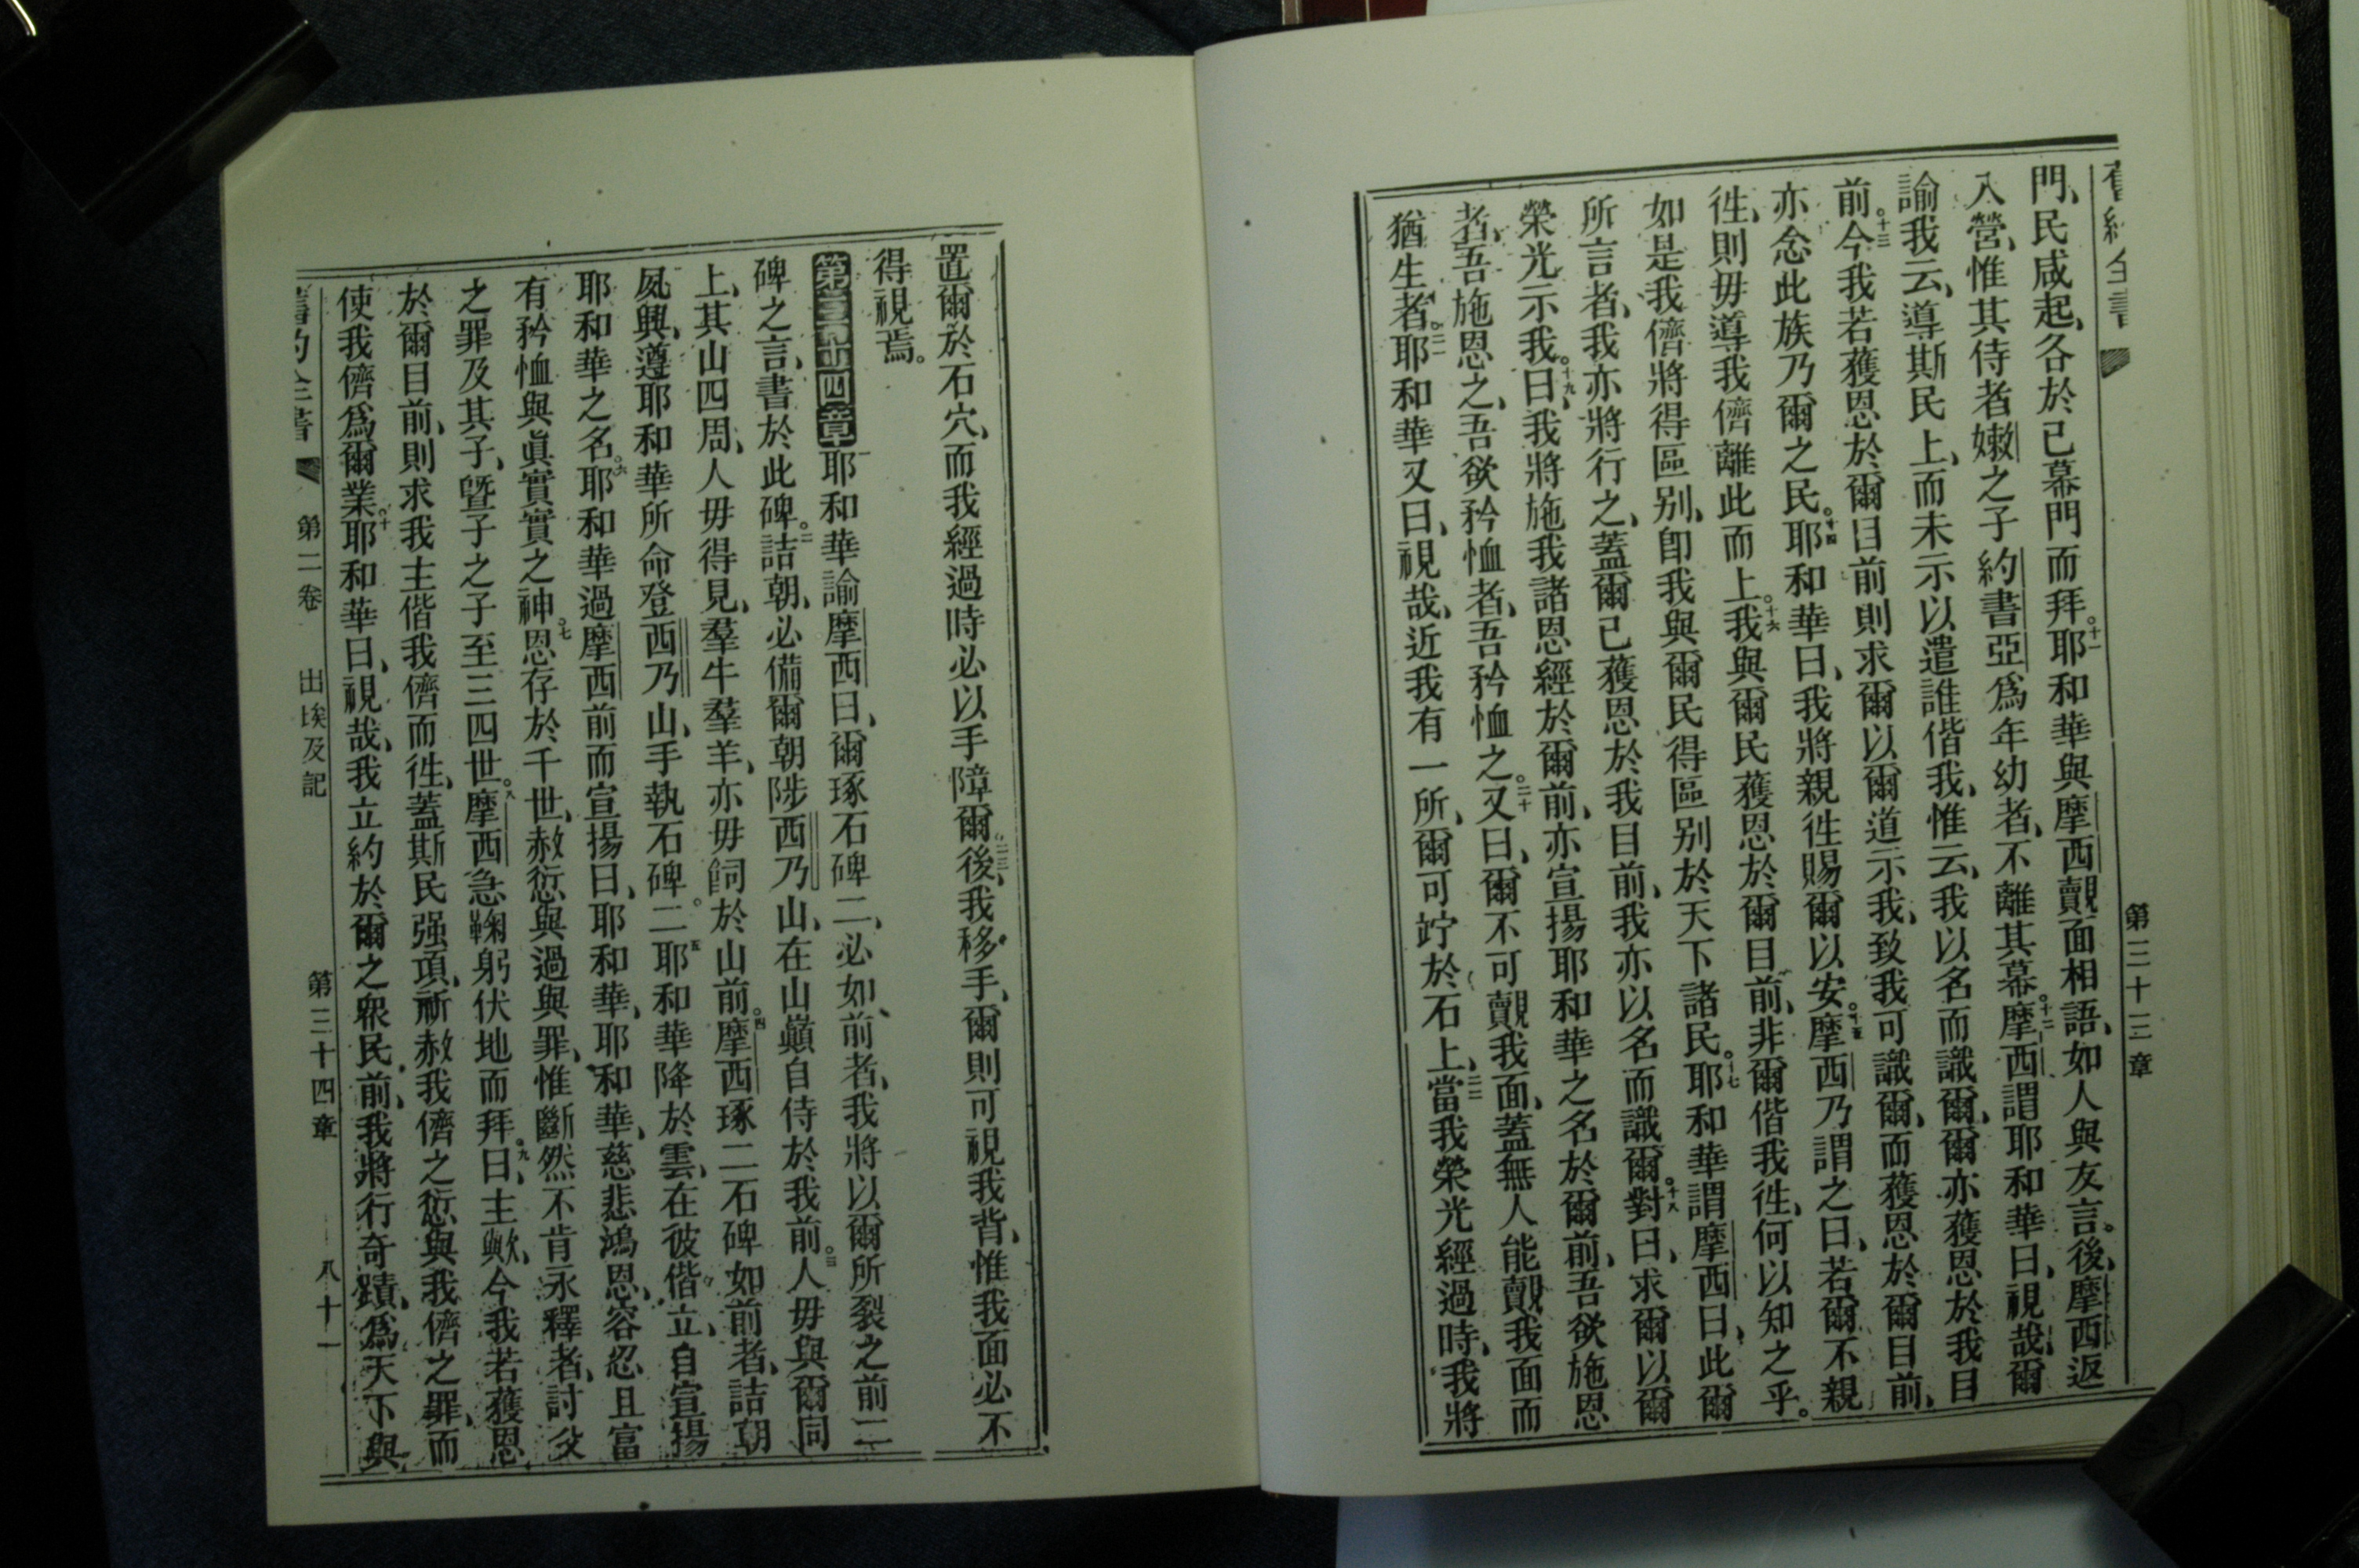 舊約全書
第三十三章
門、民咸起、各於己幕門而拜。十一耶和華與摩西覿面相語、如人與友言。後、摩西返
入營、惟其侍者嫩之子約書亞爲年幼者、不離其幕。十二摩西謂耶和華曰、視哉、爾
諭我云、導斯民上、而未示以遣誰偕我、惟云、我以名而識爾、爾亦獲恩於我目
前。十三今我若獲恩於爾目前、則求爾以爾道示我、致我可識爾、而獲恩於爾目前、
亦念此族乃爾之民。十四耶和華曰、我將親徃賜爾以安。十五摩西乃謂之曰、若爾不親
徃、則毋導我儕離此而上。十六我與爾民獲恩於爾目前、非爾偕我徃、何以知之乎。
如是我儕將得區別、卽我與爾民得區別於天下諸民。十七耶和華謂摩西曰、此爾
所言者、我亦將行之、蓋爾已獲恩於我目前、我亦以名而識爾。十八對曰、求爾以爾
榮光示我。十九曰、我將施我諸恩經於爾前、亦宣揚耶和華之名於爾前、吾欲施恩
者、吾施恩之、吾欲矜恤者、吾矜恤之。二十又曰、爾不可覿我面、蓋無人能覿我面而
猶生者。二一耶和華又曰、視哉、近我有一所、爾可竚於石上、二二當我榮光經過時、我將
置爾於石穴、而我經過時必以手障爾、二三後、我移手、爾則可視我背、惟我面必不
得視焉。
第三十四章 一耶和華諭摩西曰、爾琢石碑二、必如前者、我將以爾所裂之前二
碑之言、書於此碑。二詰朝、必備爾朝陟西乃山、在山巔自侍於我前。三人毋與爾同
上、其山四周、人毋得見、羣牛羣羊、亦毋飼於山前。四摩西琢二石碑如前者、詰朝
夙興、遵耶和華所命登西乃山、手執石碑二。五耶和華降於雲、在彼偕立、自宣揚
耶和華之名。六耶和華過摩西前而宣揚曰、耶和華、耶和華、慈悲鴻恩、容忍且富
有矜恤與眞實實之神。七恩存於千世、赦愆與過與罪、惟斷然不肯永釋者、討父
之罪及其子、曁子之子至三四世。八摩西急鞠躬伏地而拜。九曰、主歟、今我若獲恩
於爾目前、則求我主偕我儕而徃、蓋斯民强項、祈赦我儕之愆與我儕之罪、而
使我儕爲爾業。十耶和華曰、視哉、我立約於爾之衆民前、我將行奇蹟、爲天下與
舊約全書 第二卷 出埃及記 第三十四章 八十一